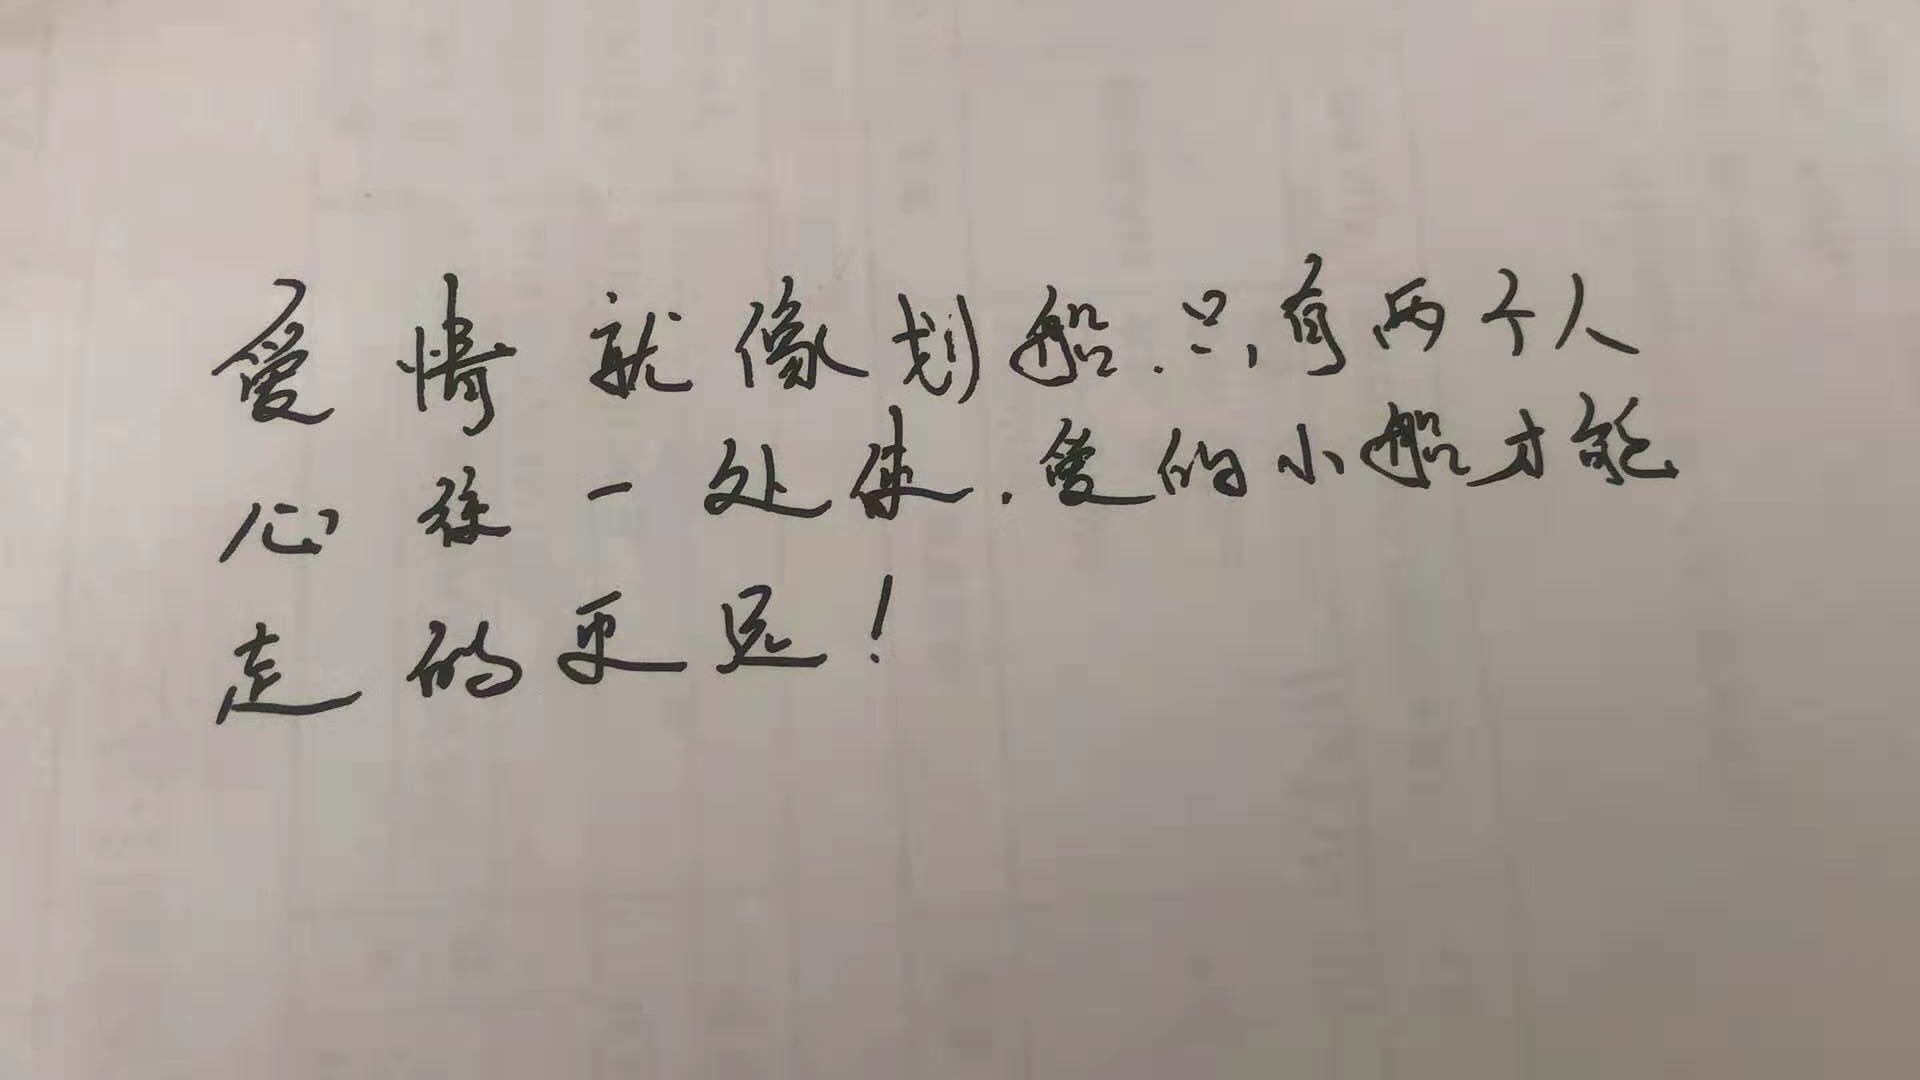 爱情就像划船.只有两个人
心往一处使.爱的小船才能
走的更远！